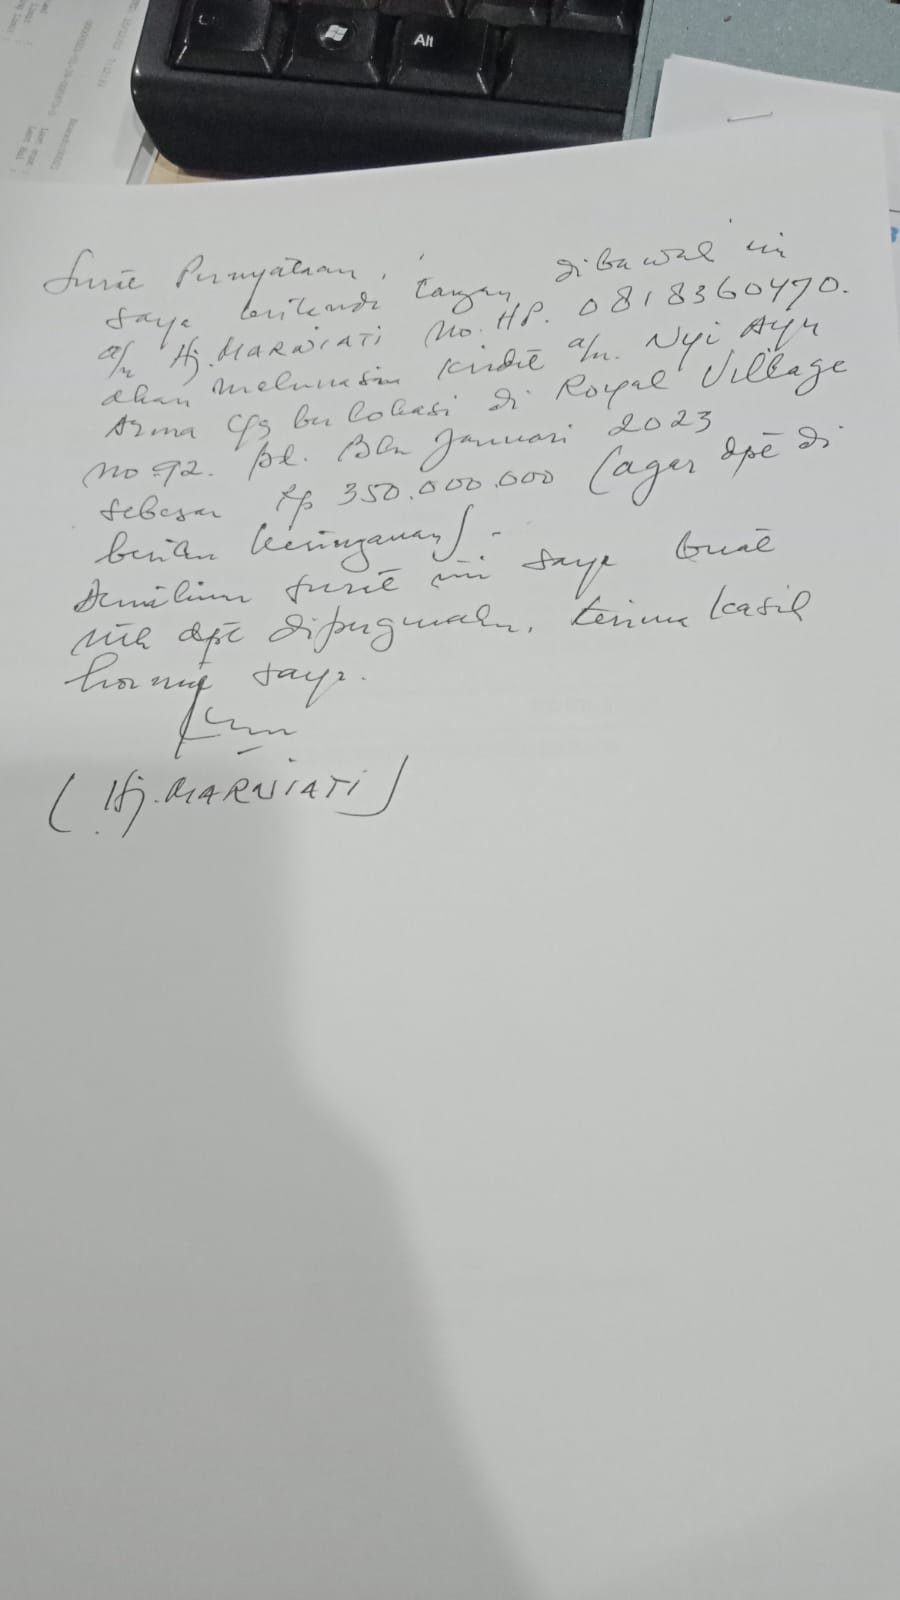 Alt
Surat Pernyataan,
saya bertanda tangan dibawah ini
a/n Hj. MARNIATI no. HP. 0818360470.
akan melunasin kredit a/n. Nyi Ayu
Azma yg berlokasi di Royal Village
no 92. pd. Bln Januari 2023
sebesar Rp 350.000.000 (agar dpt di
berikan keringanan).
Demikian surat ini saya buat
utk dpt dipergunakan, terima kasih
hormat saya.
(Hj. MARNIATI)